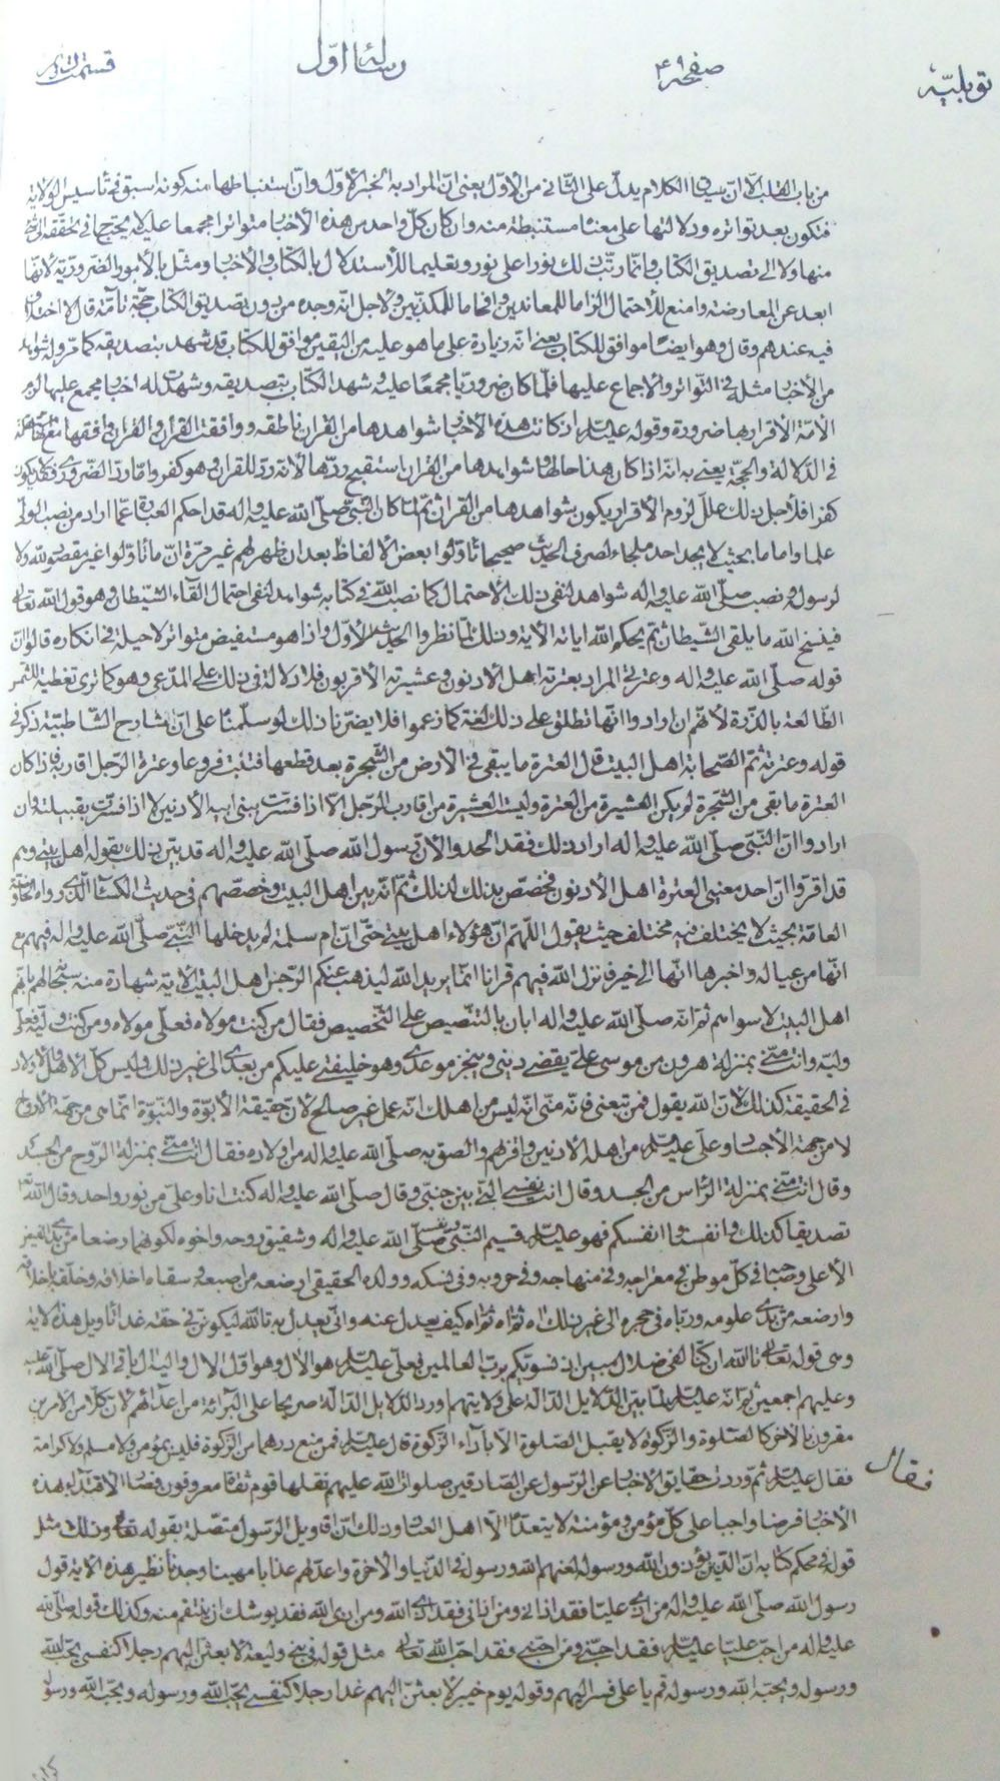 توبليّه صفحه ۴۹ رسالهٔ اوّل
من باب القلب الّا انّ سياق الكلام يدلّ على الثانى من الأوّل يعنى انّ المراد به الخبر الأوّل وانّ استنباطها منه كونه اسبق فى تأسيس الولاية
فتكون بعد تواتره ودلالتها على معنًى مستنبطة منه وان كان كلّ واحد من هذه الأخبار متواترا مجمعا عليه لا يحتاج فى تحقّقه
منها ولا الى تصديق الكتاب وانّما رتّب ذلك نورا على نور وتعليما للاستدلال بالكتاب والأخبار ومثل بالأمور الضرورية لأنّها
ابعد عن المعارضة وامنع للاحتمال الزاما للمعاندين وافحاما للمكذّبين ولاجل انّه وحده من دون تصديق الكتاب حجّة تامّة قال لا اختلاف
فيه عندهم وقال وهو ايضًا موافق للكتاب يعنى انّه زيادة على ما هو عليه من اليقين موافق للكتاب قد شهد بتصديقه كما مرّ وله شواهد
من الأخبار مثله فى التّواتر والاجماع عليها فلمّا كان ضروريّا مجمعًا عليه وشهد الكتاب بتصديقه وشهدت له اخبار مجمع عليها لزم
الأمّة الأقرار بها ضرورة وقوله عليه السّلام ان كانت هذه الأخبار شواهدها من القرآن ناطقه ووافقت القرآن والقرآن وافقها
فى الدّلالة والحجّة يعنى به انّه اذا كان هذا حالها وشواهدها من القرآن استقبح ردّها لانّه ردّ للقرآن وهو كفر وامّا ردّ الضّرورى فقد يكون
كفرا فلأجل ذلك علل لزوم الأقرار بكون شواهدها من القرآن ثمّ لمّا كان النّبىّ صلّى الله عليه واله قد احكم العبارة عمّا اراد من نصب الولىّ
علما واماما بحيث لا يجد احد ملجاء لصرف الحديث صحيحا تاوّلوا بعض الالفاظ بعد ان ظهر لهم غير مرّة انّ ما تاوّلوا غير مقصود لله ولا
لرسوله ونصب صلّى الله عليه واله شواهد لنفى ذلك الاحتمال كما نصب الله فى كتابه شواهد لنفى احتمال القاء الشّيطان وهو قول الله تعالى
فينسخ الله ما يلقى الشّيطان ثمّ يحكم الله اياته الآية وذلك لمّا نظروا الحديث الأوّل واذا هو مستفيض متواتر لا حيلة فى انكاره قالوا انّ
قوله صلّى الله عليه واله وعترتى المراد بعترته اهل الأدنون وعشيرته الأقربون فلا دلالة فى ذلك على المدّعى وهو كما ترى تغطية للشّمس
الطّالعة بالذّرة لأنّهم ان ارادوا انّها تطلق على ذلك لغة كما زعموا فلا يضرّنا ذلك لو سلّمنا على انّ شارح الشاطبيّة ذكر فى
قوله وعترته ثمّ الصّحابة اهل البيت قال العترة ما يبقى فى الأرض من الشّجرة بعد قطعها فتنبت فروعا وعترة الرّجل اقاربه فاذا كان
العترة ما بقى من الشّجرة لم يكن العشيرة من العترة وليست العشيرة من اقارب الرّجل الّا اذا فسّرت ببنى ابيه الأدنين لا اذا فسّرت بقبيلته وان
ارادوا انّ النّبىّ صلّى الله عليه واله اراد ذلك فقد الحدوا لأنّ رسول الله صلّى الله عليه واله قد بيّن ذلك بقوله اهل بيتى وهم
قد اقرّوا انّ احد معنيى العترة اهل الأدنون فخصّص بذلك لذلك ثمّ انّه بيّن اهل البيت وخصّصهم فى حديث الكساء الّذى رواه
العامّة بحيث لا يختلف فيه مختلف حيث يقول اللّهمّ انّ هؤلاء اهل بيتى حتّى انّ ام سلمة لم يدخلها النّبىّ صلّى الله عليه واله فيهم مع
انّها من عياله واخبرها انّها الى خير فانزل الله فيهم قرانا انّما يريد الله ليذهب عنكم الرّجس اهل البيت الآية شهادة منه سبحانه لهم بانّهم
اهل البيت لا سواهم ثمّ انّه صلّى الله عليه واله ابان بالتّنصيص على التّخصيص فقال من كنت مولاه فعلىّ مولاه ومن كنت وليّه فعلىّ
وليّه وانت منّى بمنزلة هرون من موسى علىّ يقضى دينى وينجز موعدى وهو خليفتى عليكم من بعدى الى غير ذلك وليس كلّ الأهل والأولاد
فى الحقيقة كذلك لأنّ الله يقول فمن تبعنى فانّه منّى انّه ليس من اهلك انّه عمل غير صالح لأنّ حقيقة الأبوّة والبنوّة انّما هى من جهة الأرواح
لا من جهة الأجساد وعلىّ عليه السّلام من اهله الأدنين واقربهم والصق به صلّى الله عليه واله من اولاده فقال انت منّى بمنزلة الرّوح من الجسد
وقال انت منّى بمنزلة الرّأس من الجسد وقال انت نفسى الّتى بين جنبىّ وقال صلّى الله عليه واله كنت انا وعلىّ من نور واحد وقال الله
تصديقا كذلك وانفسنا وانفسكم فهو عليه السّلام قسيم النّبىّ صلّى الله عليه واله وشقيق روحه واخوه لكونهما رضعا من
الأعلى وصاحبه فى كلّ موطن فى معراجه وفى منهاجه وفى حروبه وفى نسكه وولده الحقيقى ارضعه من اصبعه فسقاه اخلاقه وخلّقه باخلاقه
وارضعه من ثدى علومه وربّاه فى حجره الى غير ذلك اه ثمّ اه ثمّ اه كيف يعدل عنه وانّى يعدل به تالله ليكونن فى حقّه غدا تاويل هذه الآية
وهى قوله تعالى تالله ان كنّا لفى ضلال مبين اذ نسوّيكم بربّ العالمين فعلىّ عليه السّلام هو الآل وهو اوّل الآل واليه آل باقى الآل صلّى الله عليه
وعليهم اجمعين ثمّ انّه عليه السّلام لمّا بيّن الدّلايل الدّالة على ولايتهم ورد الدّلايل الدّالة صريحا على البراءة من اعدائهم لأن كلّا من الأمرين
مقرون بالآخر كالصّلوة والزّكوة لا يقبل الصّلوة الّا باداء الزّكوة قال عليه السّلام فمن منع درهما من الزّكوة فليس بمؤمن ولا مسلم ولا كرامة
فقال عليه السّلام ثمّ وردت حقايق الأخبار عن الرّسول عن الصّادقين صلوات الله عليهم نقلها قوم ثقاة معروفون فصار الاقتداء بهذه
الأخبار فرضا واجبا على كلّ مؤمن ومؤمنة لا يتعدّاه الّا اهل العناد وذلك انّ اقاويل الرّسول متصلة بقوله تعالى وذلك مثل
قوله فى محكم كتابه انّ الّذين يؤذون الله ورسوله لعنهم الله ورسوله فى الدّنيا والآخرة واعدّ لهم عذابا مهينا وجدنا نظير هذه الآية قول
رسول الله صلّى الله عليه واله من اذى عليّا فقد اذانى ومن اذانى فقد اذى الله ومن اذى الله فقد يوشك ان ينتقم منه وكذلك قوله صلّى الله
عليه واله من احبّ عليّا عليه السّلام فقد احبّنى ومن احبّنى فقد احبّ الله تعالى مثل قوله فى بنى وليعة لابعثنّ اليهم رجلا كنفسى يحبّ الله
ورسوله ويحبّه الله ورسوله قم يا على فسر اليهم وقوله يوم خيبر لابعثنّ اليهم غدا رجلا كنفسى يحبّ الله ورسوله ويحبّه الله ورسوله
فقال